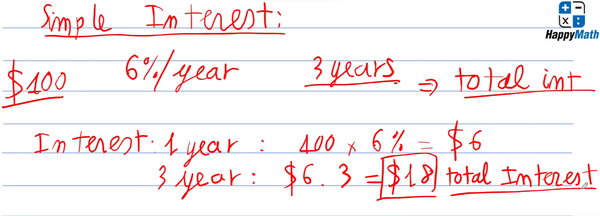 Simple Interest:
HappyMath
$100 6%/year 3 years ⇒ total int
Interest. 1 year : 100 × 6% = $6
3 year : $6 . 3 = $18 total Interest